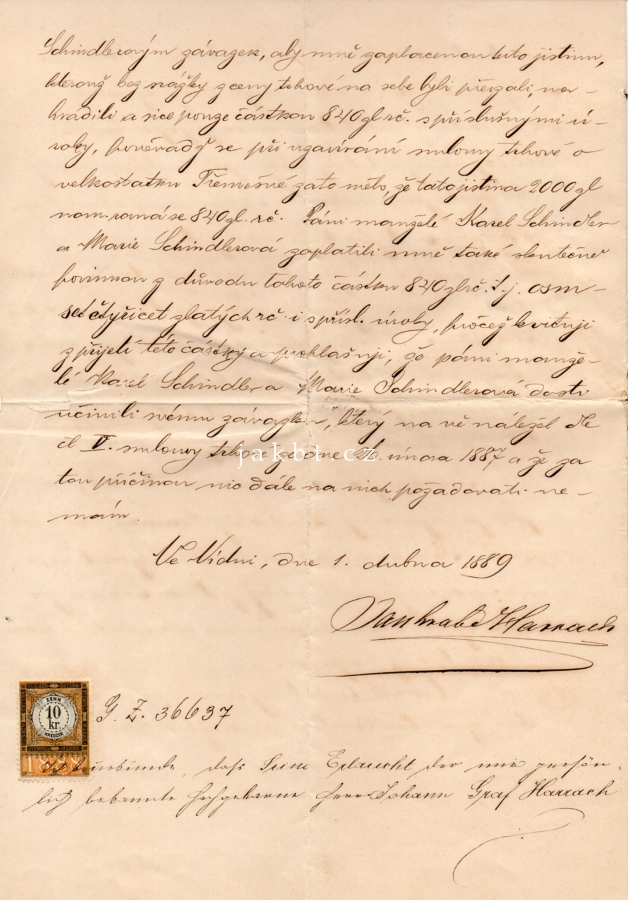 Schindlerovým závazek, aby mně zaplacenou tuto jistinu,
kterouž bez srážky z ceny trhové na sebe byli převzali, na-
hradili a sice pouze částkou 840 zl rč. s příslušnými ú-
roky, poněvadž se při uzavírání smlouvy trhové o
velkostatku Třemešné zato mělo, že tato jistina 2000 zl
nom. rovná se 840 zl. rč. Páni manželé Karel Schindler
a Marie Schindlerová zaplatili mně také skutečně
povinnou z důvodu tohoto částku 840 zl rč. t. j. osm-
set čtyřicet zlatých rč. i s přísl. úroky, pročež kvituji
z přijetí této částky a prohlašuji, že páni manže-
lé Karel Schindler a Marie Schindlerová dosti
učinili svému závazku, který na ně náležel dle
čl V. smlouvy trhové ze dne února 1887 a že za
tou příčinou nic dále na nich požadovati ne-
mám.
Ve Vídni, dne 1. dubna 1889
Jan hrabě Harrach
ZEHN
10
kr.
KREUZER
G. Z. 36637
Ich beurkunde, daß Seine Erlaucht der mir persön-
lich bekannte hochgeborne Herr Johann Graf Harrach
jakbt.cz